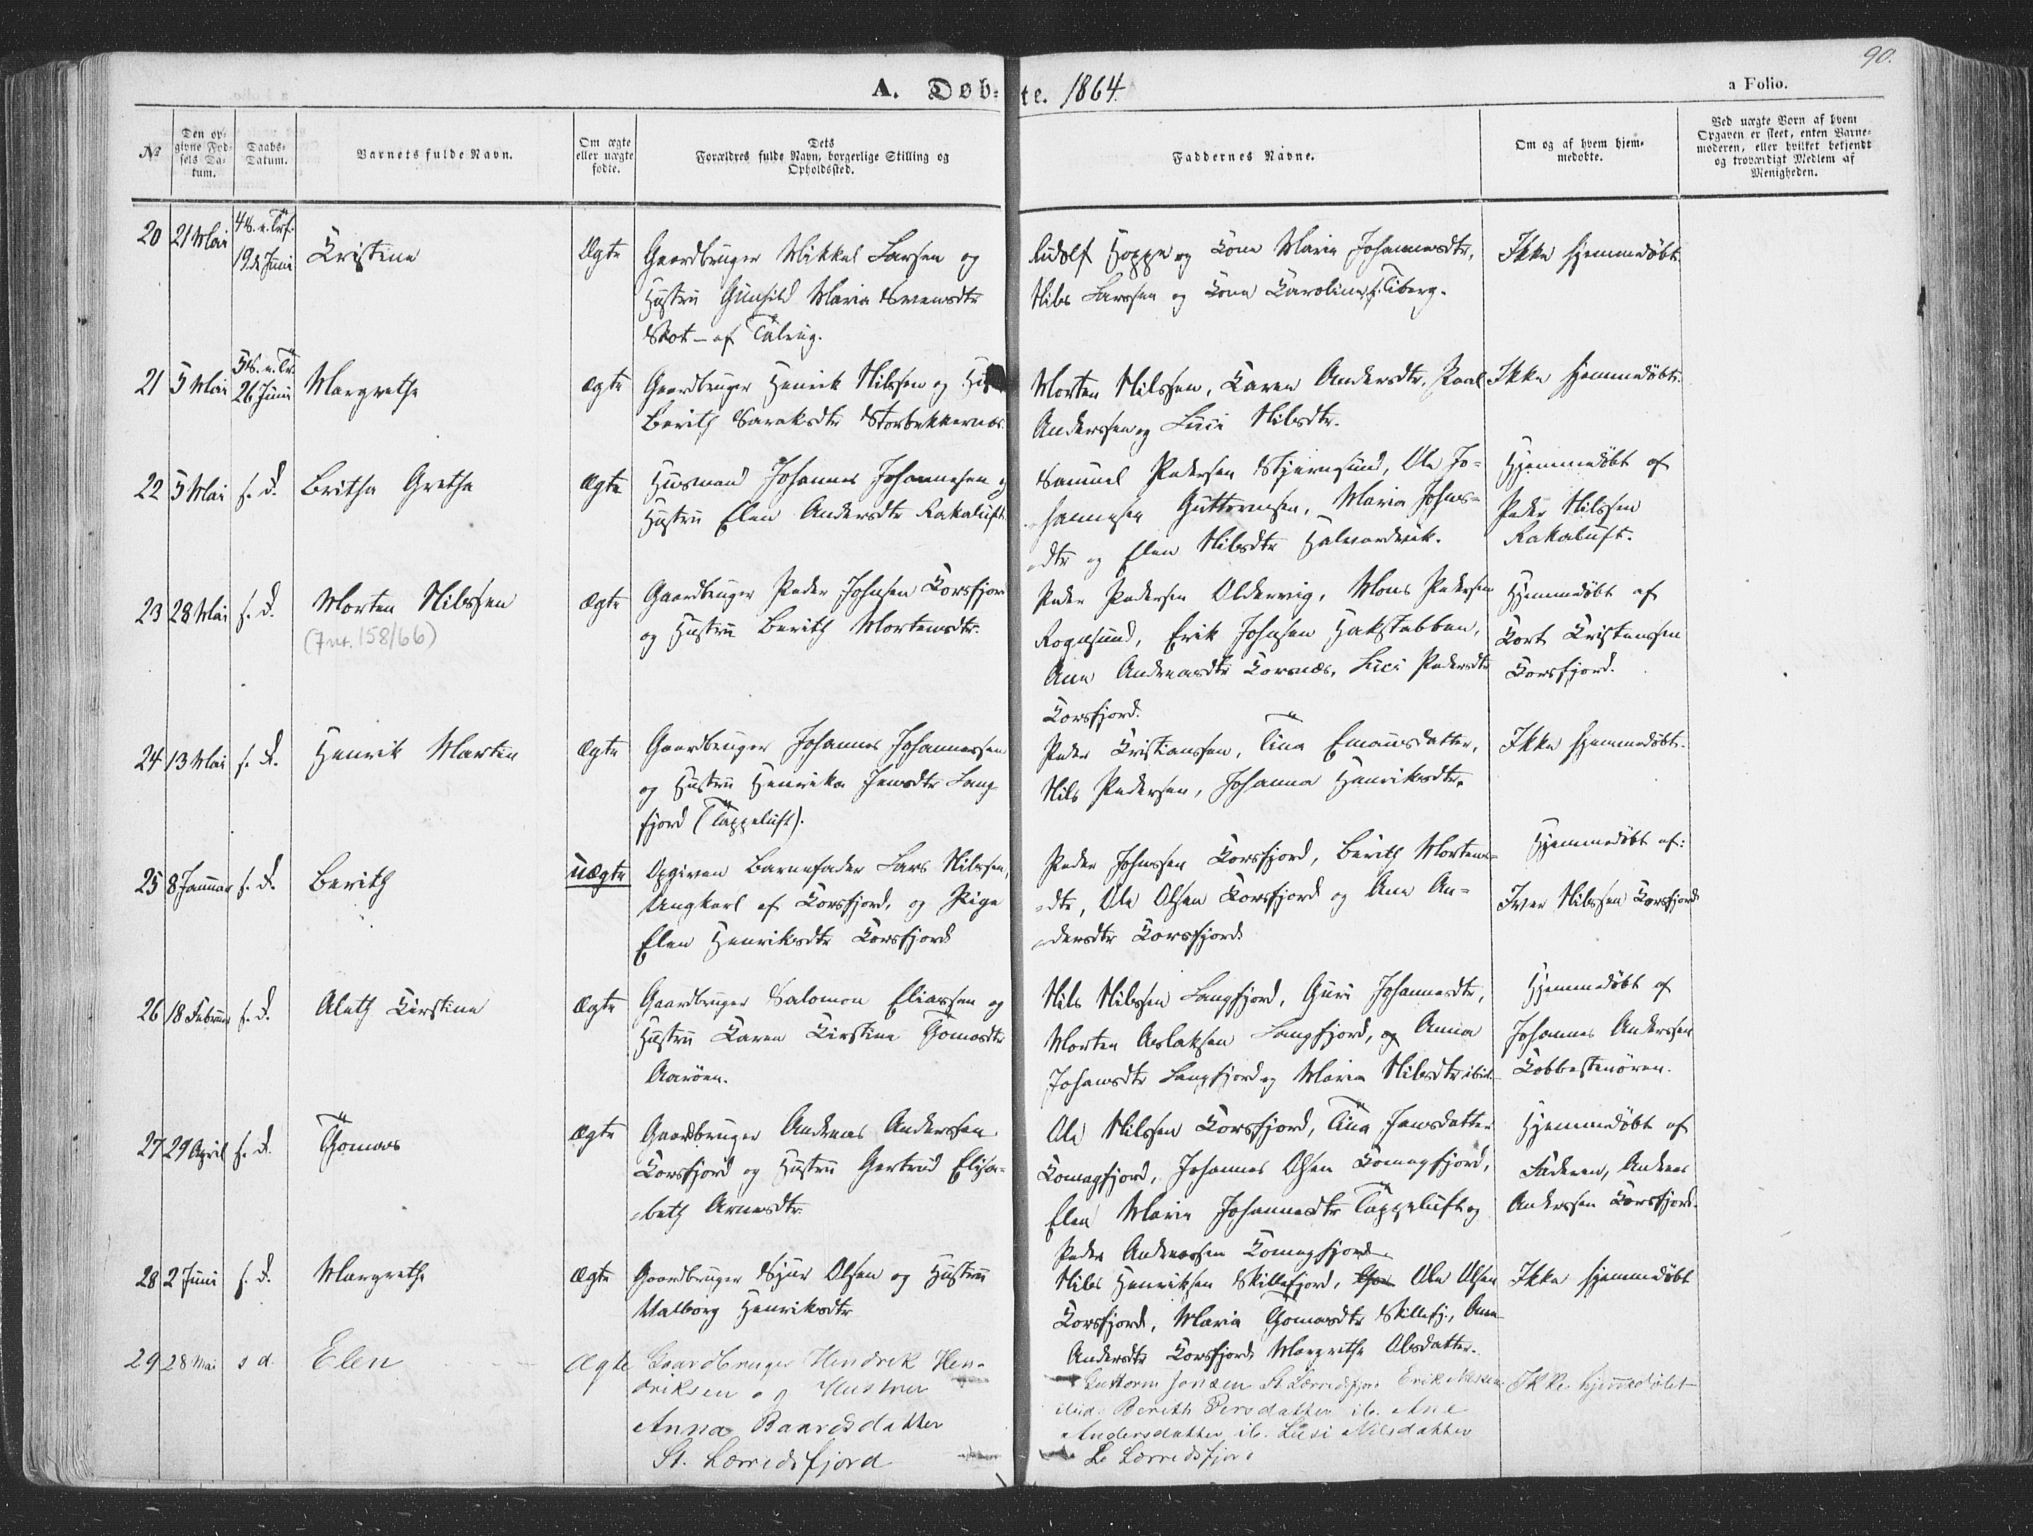 90.
A. Døbte. 1864.
a Folio.
No
Den opgivne Fødsels Datum.
Daabs-Datum.
Barnets fulde Navn.
Om ægte eller uægte fødte.
Dets Forældres fulde Navn, borgerlige Stilling og Opholdssted.
Faddernes Navne.
Om og af hvem hjemmedøbte.
Ved uægte Børn af hvem Opgaven er skeet, enten Barnemoderen, eller hvilket bekjendt og troværdigt Medlem af Menigheden.
20 21 Mai 4 S. e. Trf. 19de Juni Kristine Ægte Gaardbruger Mikkel Larsen og
Hustru Gunhild Maria Svensdtr
Skot - af Talvig.
Rudolf Hoppe og Kone Maria Johannesdtr,
Nils Larssen og Kone Karoline f. Tiberg.
Ikke hjemmedøbt.
21 5 Mai 5 S. e. Tr. 26 Juni Margrethe ægte Gaardbruger Henrik Nilssen og
Berith Saraksdtr Storbekkernæs.
Morten Nilssen, Karen Andersdtr, Paul
Anderssen og Lusi Nilsdtr.
Ikke hjemmedøbt.
22 5 Mai s. d. Britha Grethe Ægte Husmand Johannes Johannesen og
Hustru Elen Andersdtr Rakaluft
Samuel Pedersen Stjernsund, Ole Jo-
hannesen Guttormsen, Maria Johns-
dtr og Elen Nilsdtr Halvardvik.
Hjemmedøbt af
Peder Nilssen
Rakaluft.
23 28 Mai s. d. Morten Nilssen
(Fnt. 158/66)
Ægte Gaardbruger Peder Johnsen Korsfjord
og Hustru Berith Mortensdtr.
Peder Pedersen Oldervig, Mons Pedersen
Rognsund, Erik Johnsen Hakstabben,
Ane Andreasdtr Korsnæs, Lusi Pedersdtr
Korsfjord.
Hjemmedøbt af
Kort Kristenssen
Korsfjord.
24 13 Mai s. d. Henrik Martin Ægte Gaardbruger Johannes Johannessen
og Hustru Henrika Jensdtr Lang-
fjord (Tappeluft).
Peder Kristianssen, Tina Emausdatter,
Nils Pedersen, Johanna Henriksdtr.
Ikke hjemmedøbt.
25 8 Januar s. d. Berith uægte Opgiven Barnefader Lars Nilssen,
Ungkarl af Korsfjord, og Pige
Elen Henriksdtr Korsfjord
Peder Johnssen Korsfjord, Berith Mortens-
dtr, Ole Olsen Korsfjord og Ane An-
dersdtr Korsfjord.
Hjemmedøbt af:
Iver Nilssen Korsfjord
26 18 Februar s. d. Aleth Kirstine Ægte Gaardbruger Salomon Eliassen og
Hustru Karen Kirstine Tomasdtr
Aarøen.
Nils Nilssen Langfjord, Guri Johannesdtr,
Morten Aslaksen Langfjord, og Anna
Johansdtr Langfjord og Maria Nilsdtr ibid.
Hjemmedøbt af
Johannes Anderssen
Kobbestenøren.
27 29 April s. d. Thomas Ægte Gaardbruger Andreas Anderssen
Korsfjord og Hustru Gertrud Elisa-
beth Arnesdtr.
Ole Nilssen Korsfjord, Tina Jensdatter
Komagfjord, Johannes Olsen Komagfjord,
Elen Maria Johannesdtr Tappeluft og
Peder Andreassen Komagfjord
Hjemmedøbt af
Faderen, Andreas
Anderssen Korsfjord.
28 2 Juni s. d. Margrethe Ægte Gaardbruger Sjur Olsen og Hustru
Valborg Henriksdtr
Nils Henriksen Skillefjord, Ole Olsen
Korsfjord, Maria Thomasdtr Skillefj., Ane
Andersdtr Korsfjord, Margrethe Olsdatter.
Ikke hjemmedøbt
29 28 Mai s d. Elen Ægte Gaardbruger Hendrek Hen-
driksen og Hustrue
Anna Baardsdatter
St. Lerredsfjord
Guttorm Jonsen St Lerredsfjord Erik
ibid. Bereth Persdatter ib. Ane
Andersdatter ib. Lusi Nilsdatter
L Lerredsfjord
Ikke hjemmedøbt